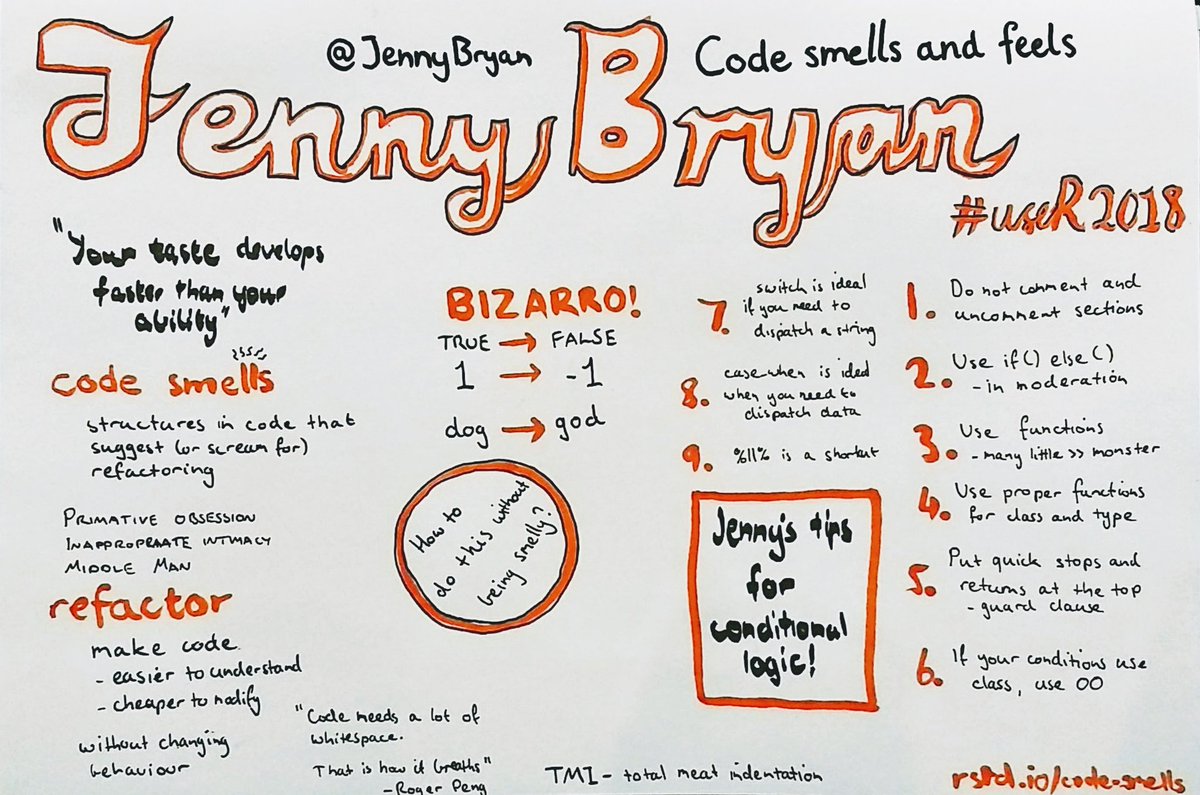 @JennyBryan
Code smells and feels
Jenny Bryan
#useR2018
"Your taste develops
faster than your
ability"
code smells
structures in code that
suggest (or scream for)
refactoring
PRIMATIVE OBSESSION
INAPPROPRAATE INTIMACY
MIDDLE MAN
refactor
make code
- easier to understand
- cheaper to modify
without changing
behaviour
BIZARRO!
TRUE → FALSE
1 → -1
dog → god
How to
do this without
being smelly?
"Code needs a lot of
whitespace.
That is how it breaths"
- Roger Peng
TMI - total meat indentation
1. Do not comment and
uncomment sections
2. Use if() else()
- in moderation
3. Use functions
- many little >> monster
4. Use proper functions
for class and type
5. Put quick stops and
returns at the top
- guard clause
6. If your conditions use
class, use OO
7. switch is ideal
if you need to
dispatch a string
8. casewhen is ideal
when you need to
dispatch data
9. %||% is a shortcut
Jenny's tips
for
conditional
logic!
rstd.io/code-smells